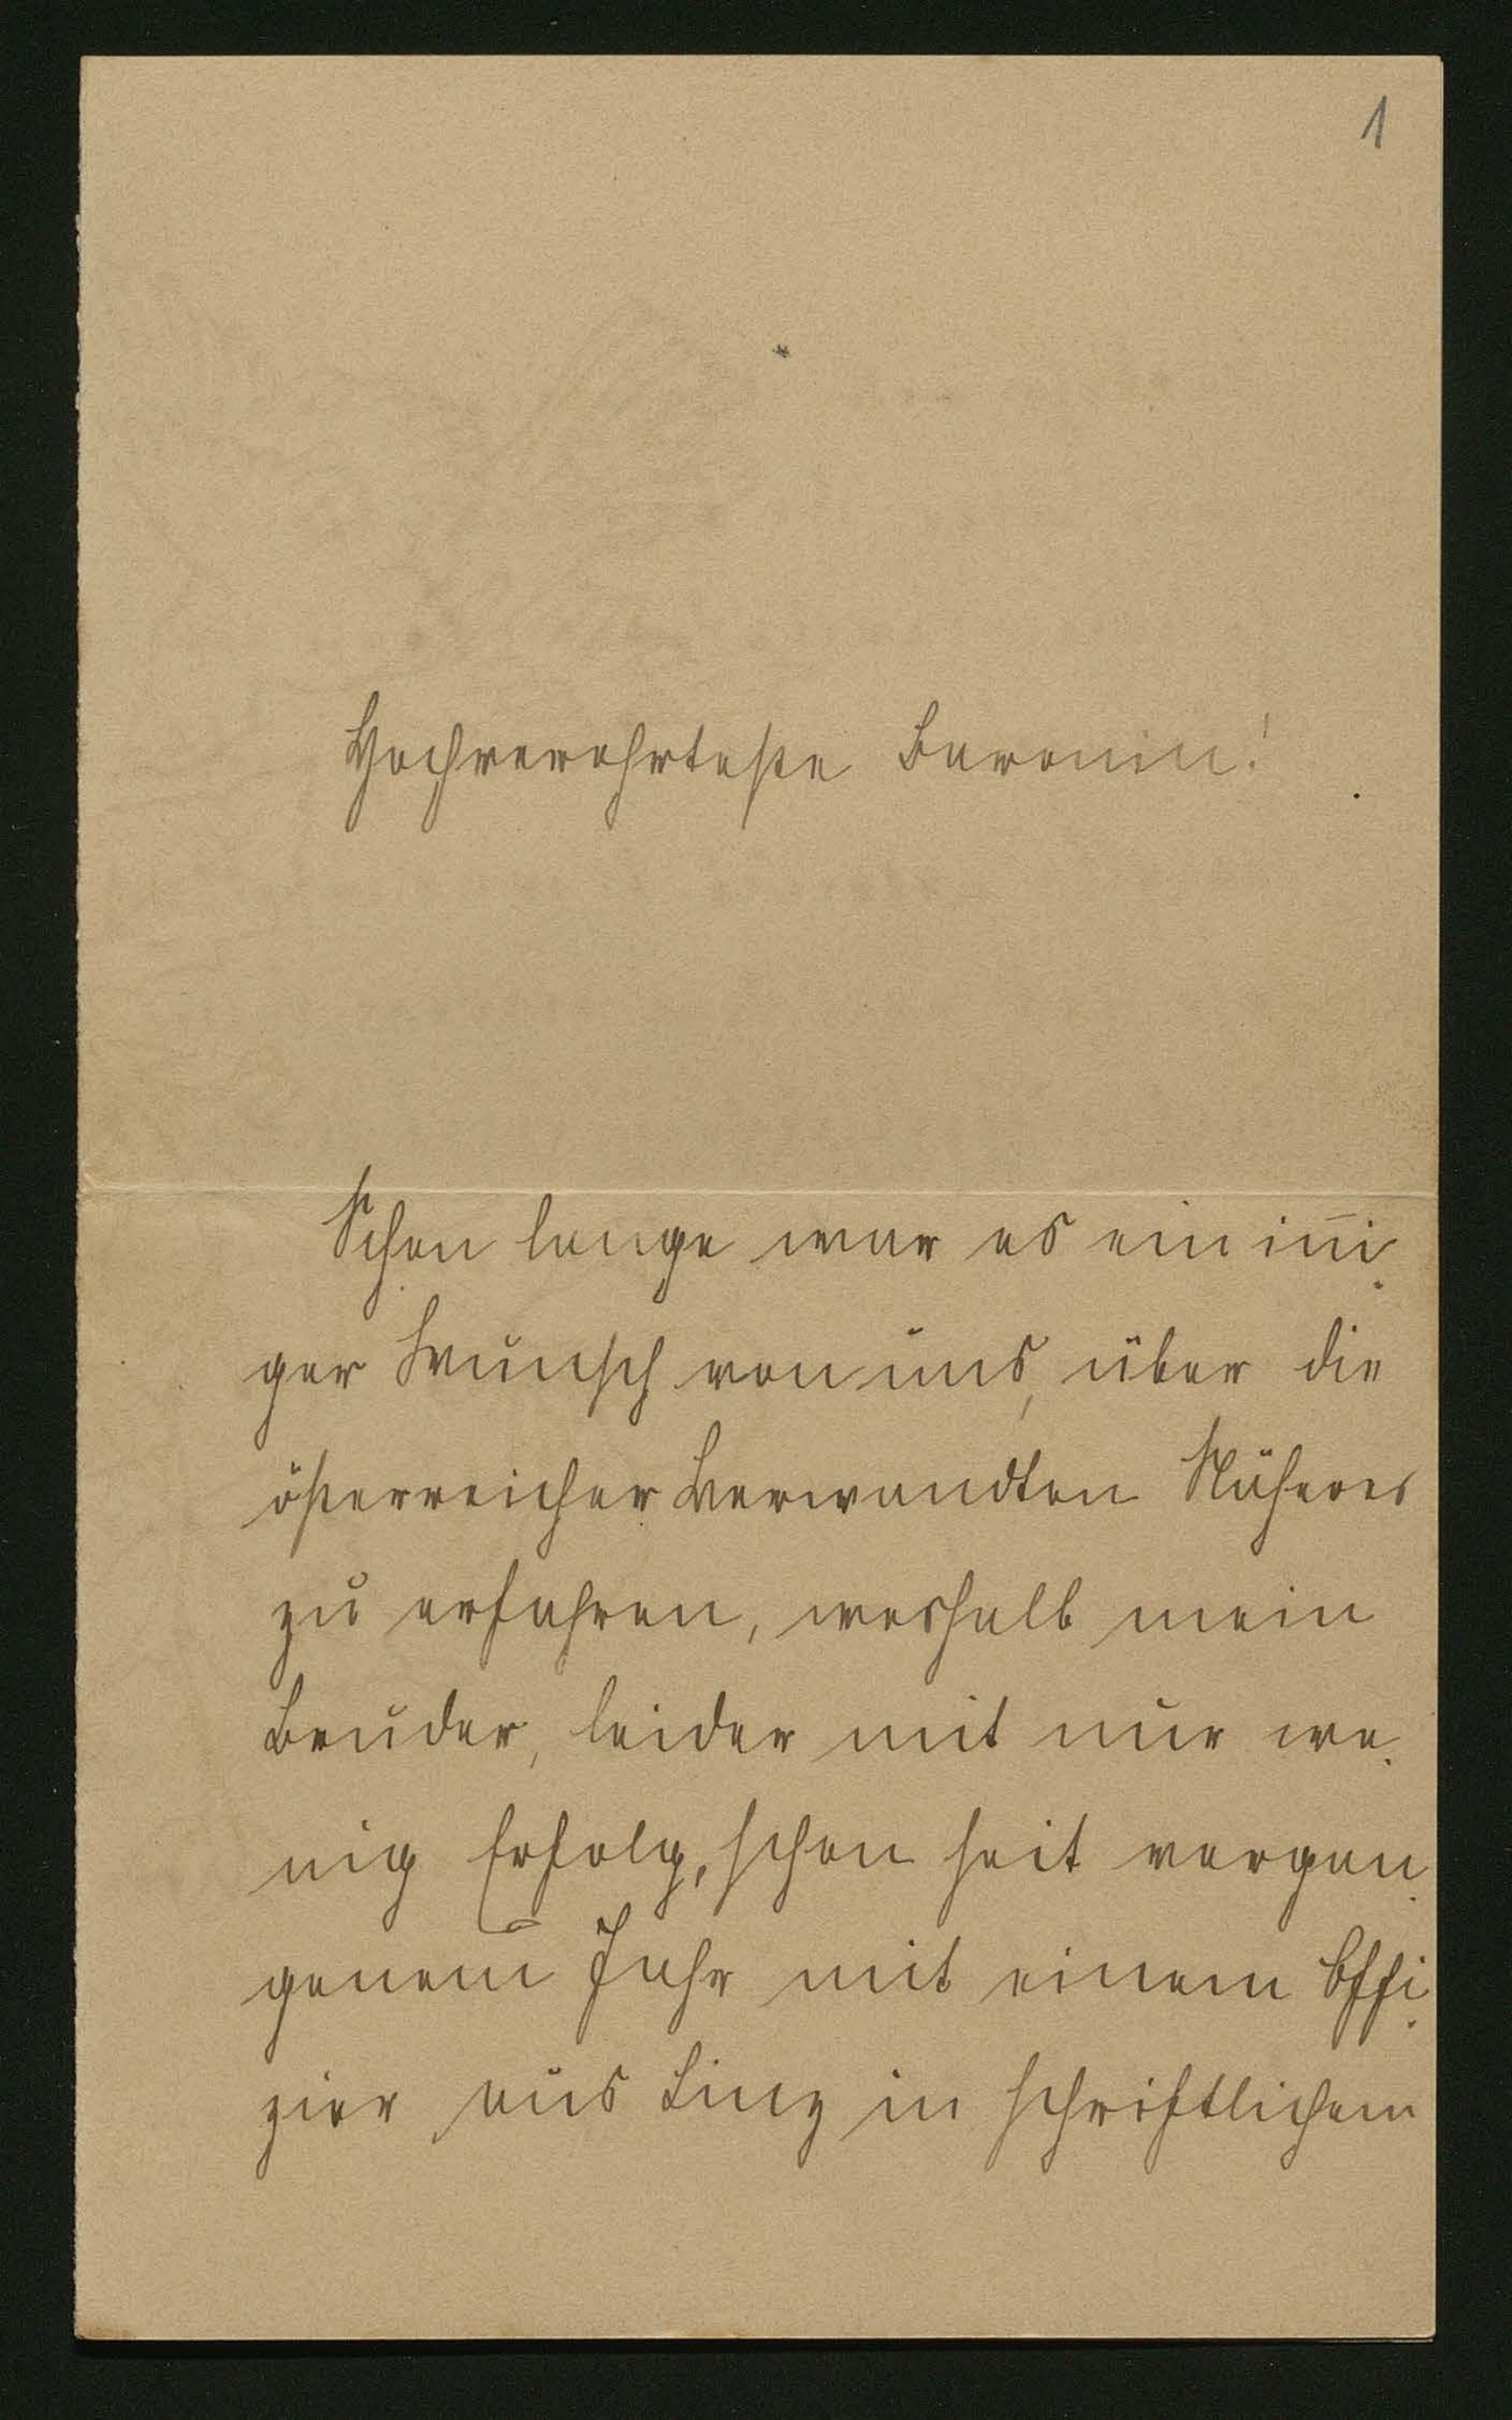 1
Hochverehrteste Baronin!
Schon lange war es ein in̄i-
ger Wunsch von uns, über die
österreicher Verwandten Näheres
zu erfahren, weshalb mein
Bruder, leider mit nur we-
nig Erfolg, schon seit vergan-
genem Jahr mit einem Offi-
zier aus Linz in schriftlichem